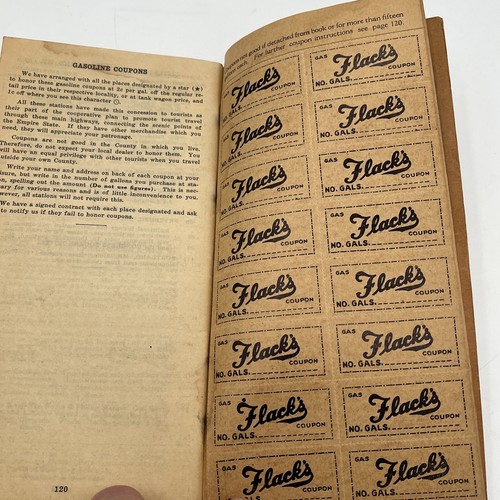 GASOLINE COUPONS
We have arranged with all the places designated by a star (★)
to honor these gasoline coupons at 2c per gal. off the regular re-
tail price in their respective locality, or at tank wagon price, and
1c off where you see this character
All these stations have made this concession to tourists as
their part of the cooperative plan to promote tourist travel
through these main highways, connecting the scenic points of
the Empire State. If they have other merchandise which you
need, they will appreciate your patronage.
Coupons are not good in the County in which you live.
Therefore, do not expect your local dealer to honor them. You
will have an equal privilege with other tourists when you travel
outside your own County.
Write your name and address on back of each coupon at your
isure, but write in the number of gallons you purchase at sta-
on, spelling out the amount (Do not use figures). This is nec-
ary for various reasons and is of little inconvenience to you,
wever, all stations will not require this.
We have a signed contract with each place designated and ask
to notify us if they fail to honor coupons.
120
good if detached from book or for more than fifteen
For further coupon instructions see page 120.
Flack's COUPON
NO. GALS.
GAS Flack's COUPON
NO. GALS.
Flack's COUPON
NO. GALS.
GAS Flack's COUPON
NO. GALS.
Flack's COUPON
NO. GALS.
GAS Flack's COUPON
NO. GALS.
GAS Flack's COUPON
NO. GALS.
GAS Flack's COUPON
NO. GALS.
GAS Flack's COUPON
NO. GALS.
GAS Flack's COUPON
NO. GALS.
GAS Flack's COUPON
NO. GALS.
GAS Flack's COUPON
NO. GALS.
GAS Flack's COUPON
NO. GALS.
GAS Flack's COUPON
NO. GALS.
GAS Flack's COUPON
NO. GALS.
GAS Flack's COUPON
NO. GALS.